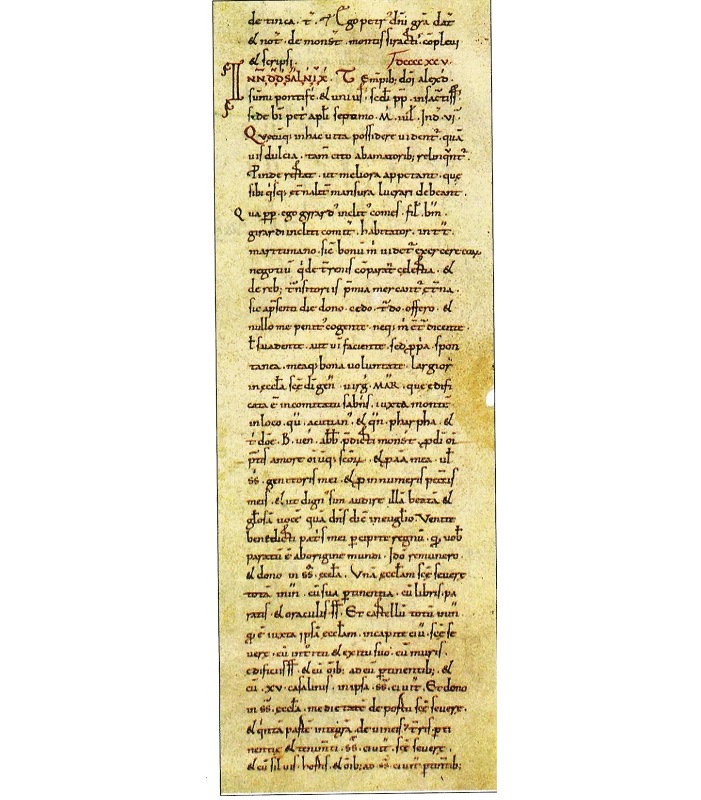 de tinca. t̄. Ego petr' dn̄i gr̄a dat
el not. de monst̄. montis siracti. cōplevi
el scripsi. Dcccc xcv.
INN DD SALNIX. Tempib; dōi alexd.
sūmi pontific̄. el univ̄s. sc̄di pp̄. in sacti
sede bi pet̄ apl̄i septimo. M. iul̄. Ind. vi.
Quecūq; in hac vita possidere videnť. quā
vis dulcia. tam̄ cito abamatorib; relinq̄nť.
Pinde restat. ut meliora appetant. que
sibi q̄sq; et̄nalit̄ mansura lucrari debeant.
Qua pp̄. ego gyrard' inclit' comes. fil̄. bm̄.
girardi incliti comit̄. habitator. in t̄t̄.
maritimano. sic̄ bonū m̄ videť exercere
negotiū q̄ de t̄renis cōparat̄ celestia. el
de reb; t̄nsitoriis p̄mia mercant̄ et̄na.
sic ap̄senti die dono. cedo. t̄do. offero. el
nullo me penit' cogente. neq; m̄ cōt̄dicente
l̄ suadente. aut vī faciente. sed pp̄a spon
tanea. meaq; bona voluntate. largior
in eccl̄a sc̄e dī gen̄. virḡ. MAR. que edifi
cata ē in comitatu sabīns. iuxta montē
in loco. qū. acutian'. el q̄n. pharpha. el
t̄ doc̄. B. ven̄. abb̄ p̄dicti monst̄. p dī oī
p̄tis amore oīuq; sc̄oȝ. el p aīa mea. ul̄
s̄s. genitoris mei. el p innumeris peccatis
meis. el ut dign' sim audire illā beata el
gl̄osā vocē. qua dn̄s dic̄ in evuglīo. Venite
benedicti patris mei percipite regnū. q̄ vob̄
paratū ē aborigine mundi. Ido remunero.
el dono in s̄s. eccl̄a. Unā eccl̄am sc̄e severe
totā in iñ. cū sua ptinentia. cū libris. pa
ratis. el oraculis s̄s̄. Et castellū totū in iñ
q̄ ē iuxta ipsā eccl̄am. in capite ciū. sc̄e se
vere. cū introitu el exitu suo. cū muris.
edificiis s̄s̄. el cū oīb; ad eū ptinentib; el
cū. xv. casalinis. in ipsa. s̄s. civit̄. Et dono
in s̄s. eccl̄a. medietatē de postu sc̄e severe.
el q̄ntā partē integrā. de vineis. t̄ris pti
nentie el tenim̄ti. s̄s. civit̄. sc̄e severe.
el cū silvis. hostis. el oīb; ad s̄s. civit̄ ptinītib;